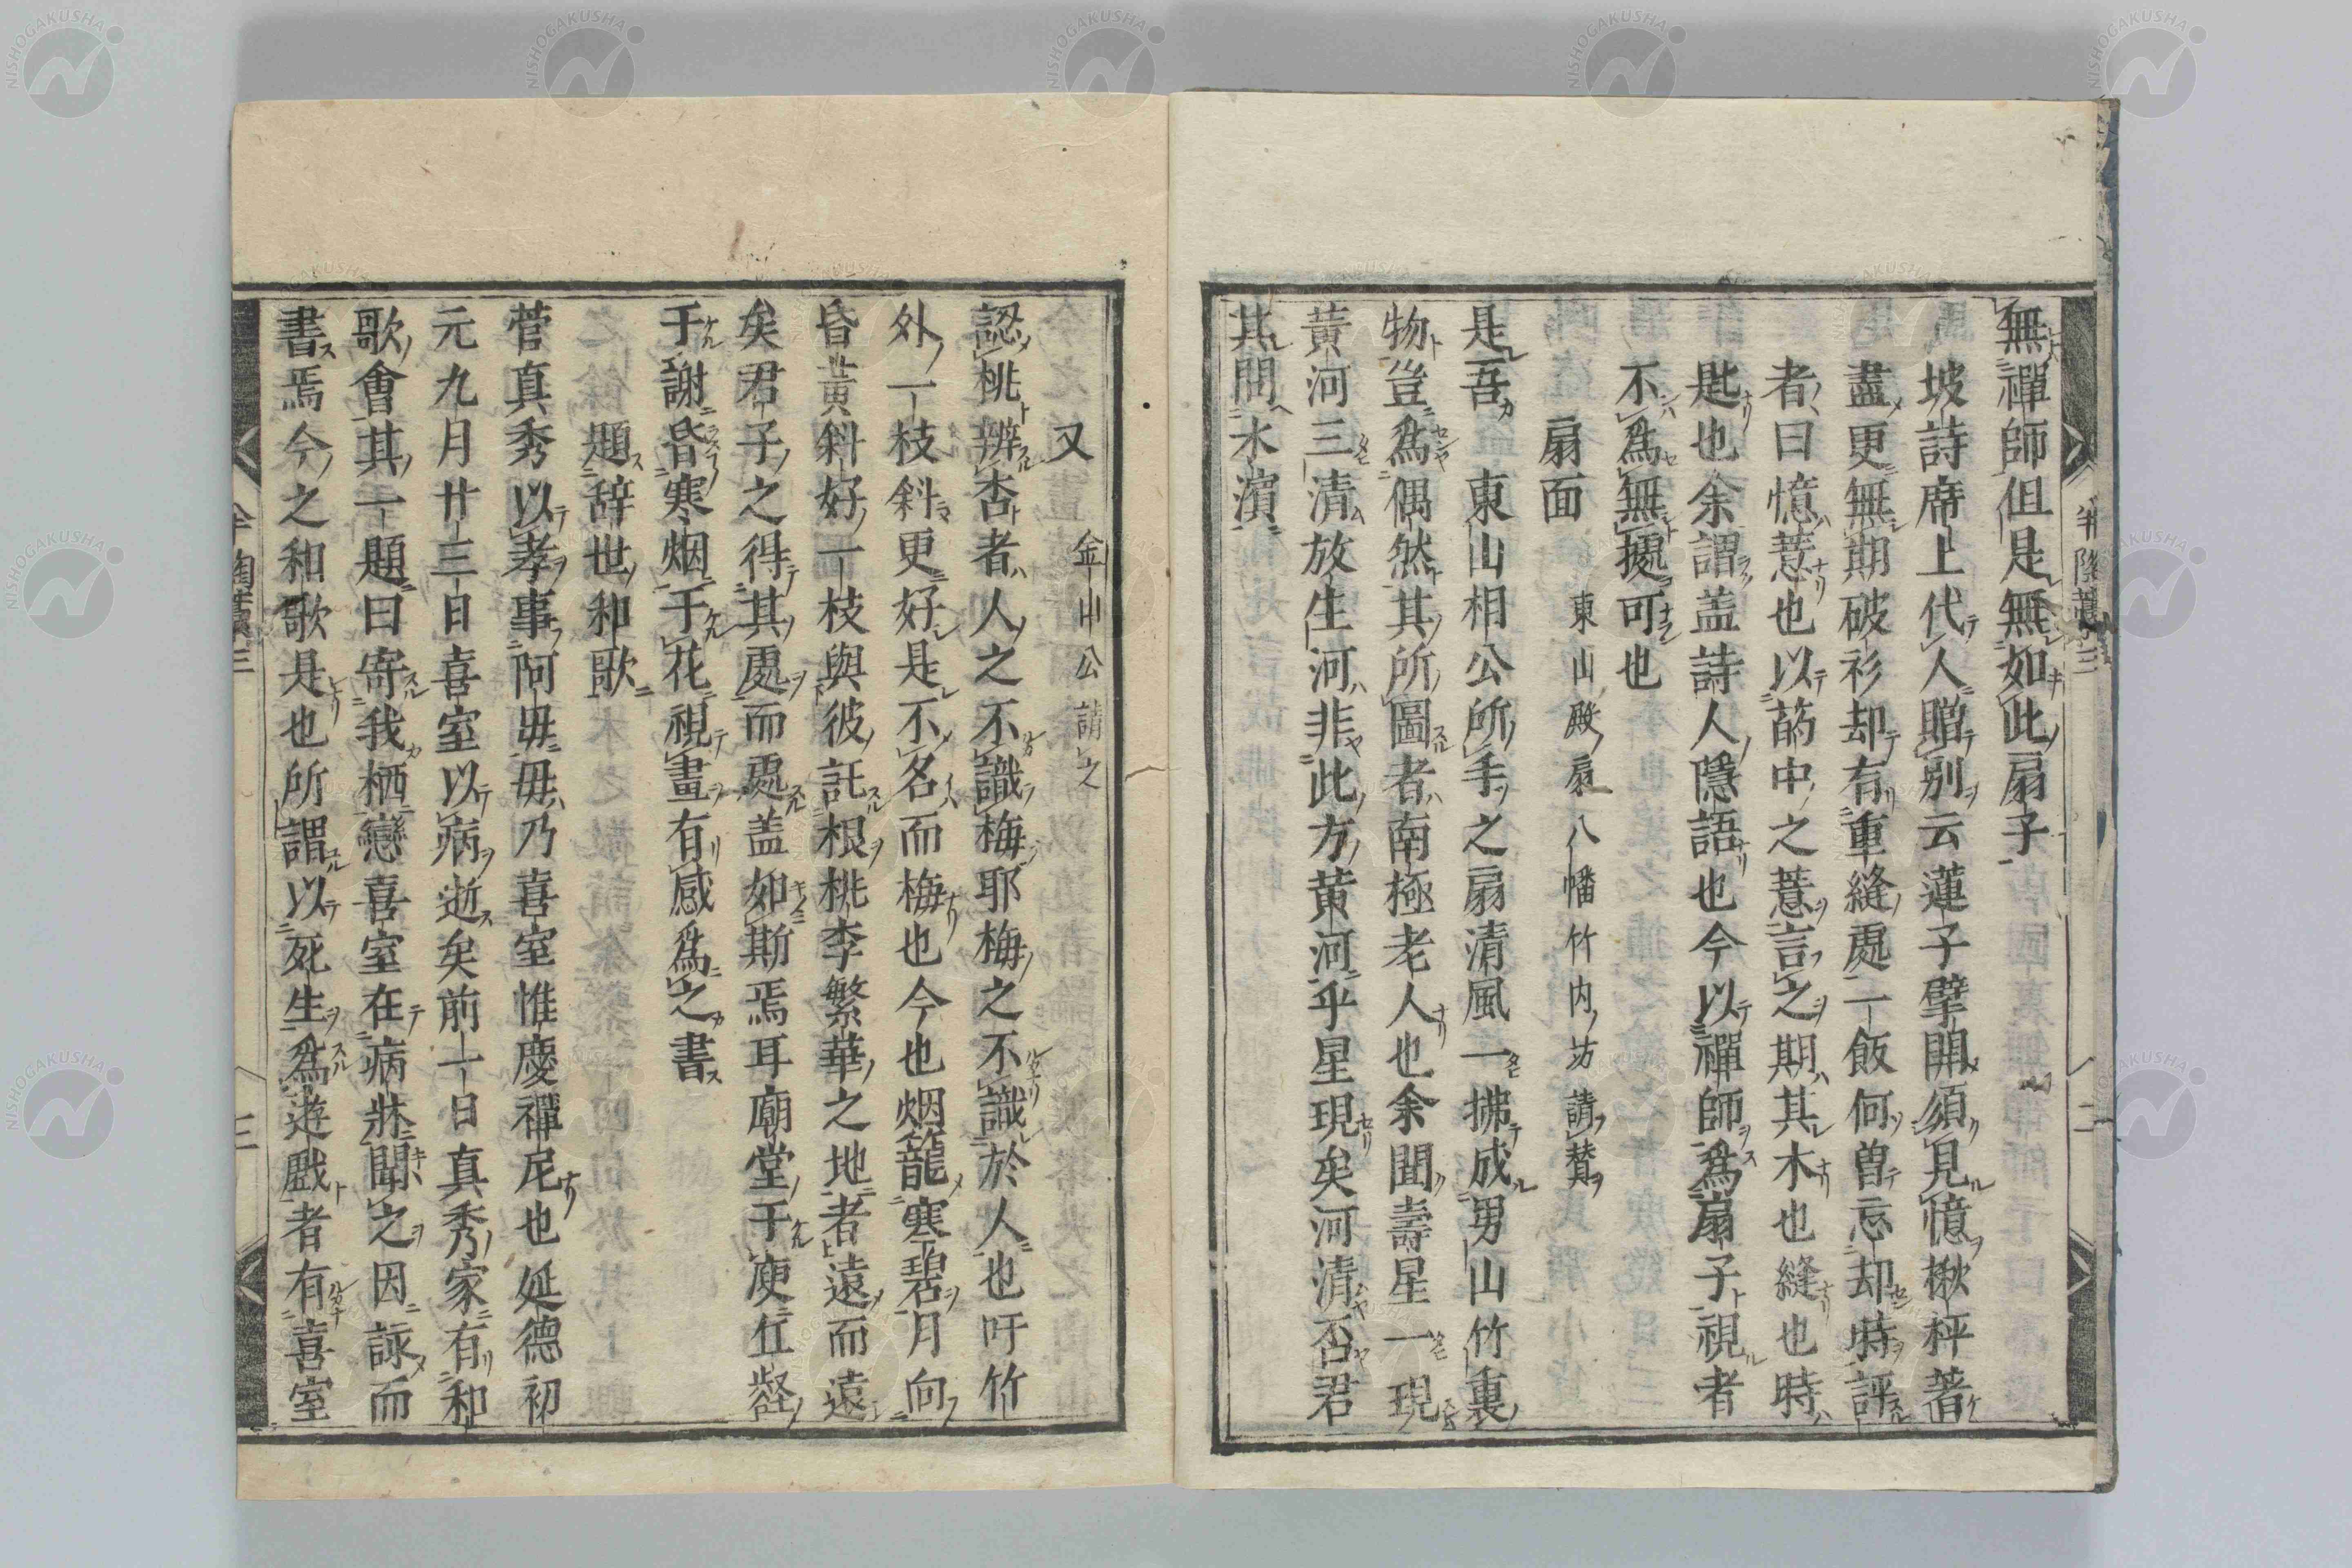 無禪師但是無如此扇子
坡詩席上代人贈別云蓮子擘開須見憶楸枰著
盡更無期破衫却有重縫處一飯何曽忘却時評
者曰憶薏也以菂中之薏言之期其木也縫也時
匙也余謂盖詩人隱語也今以禪師爲扇子視者
不爲無據可也
扇面 東山殿扇八幡竹内坊請賛
是吾東山相公所手之扇清風一拂成男山竹裏
物豈爲偶然其所圖者南極老人也余聞壽星一現
黃河三清放生河非此方黄河乎星現矣河清否君
其問水濵
又 金山公請之
認桃辨杏者人之不識梅耶梅之不識於人也吁竹
外一枝斜更好是不名而梅也今也烟籠寒碧月向
昏黃斜好一枝與彼託根桃李繁華之地者遠而遠
矣君子之得其處而處盖如斯焉耳廟堂于庾丘壑
于謝昏寒烟于花視畫有感爲之書
題辞世和歌
菅真秀以孝事阿毋毋乃喜室惟慶禪尼也延德初
元九月廿三日喜室以病逝矣前一日真秀家有和
歌會其一題曰寄我栖戀喜室在病牀聞之因詠而
書焉今之和歌是也所謂以死生爲遊戲者有喜室
半陶藁三
三
二
NISHOGAKUSHA